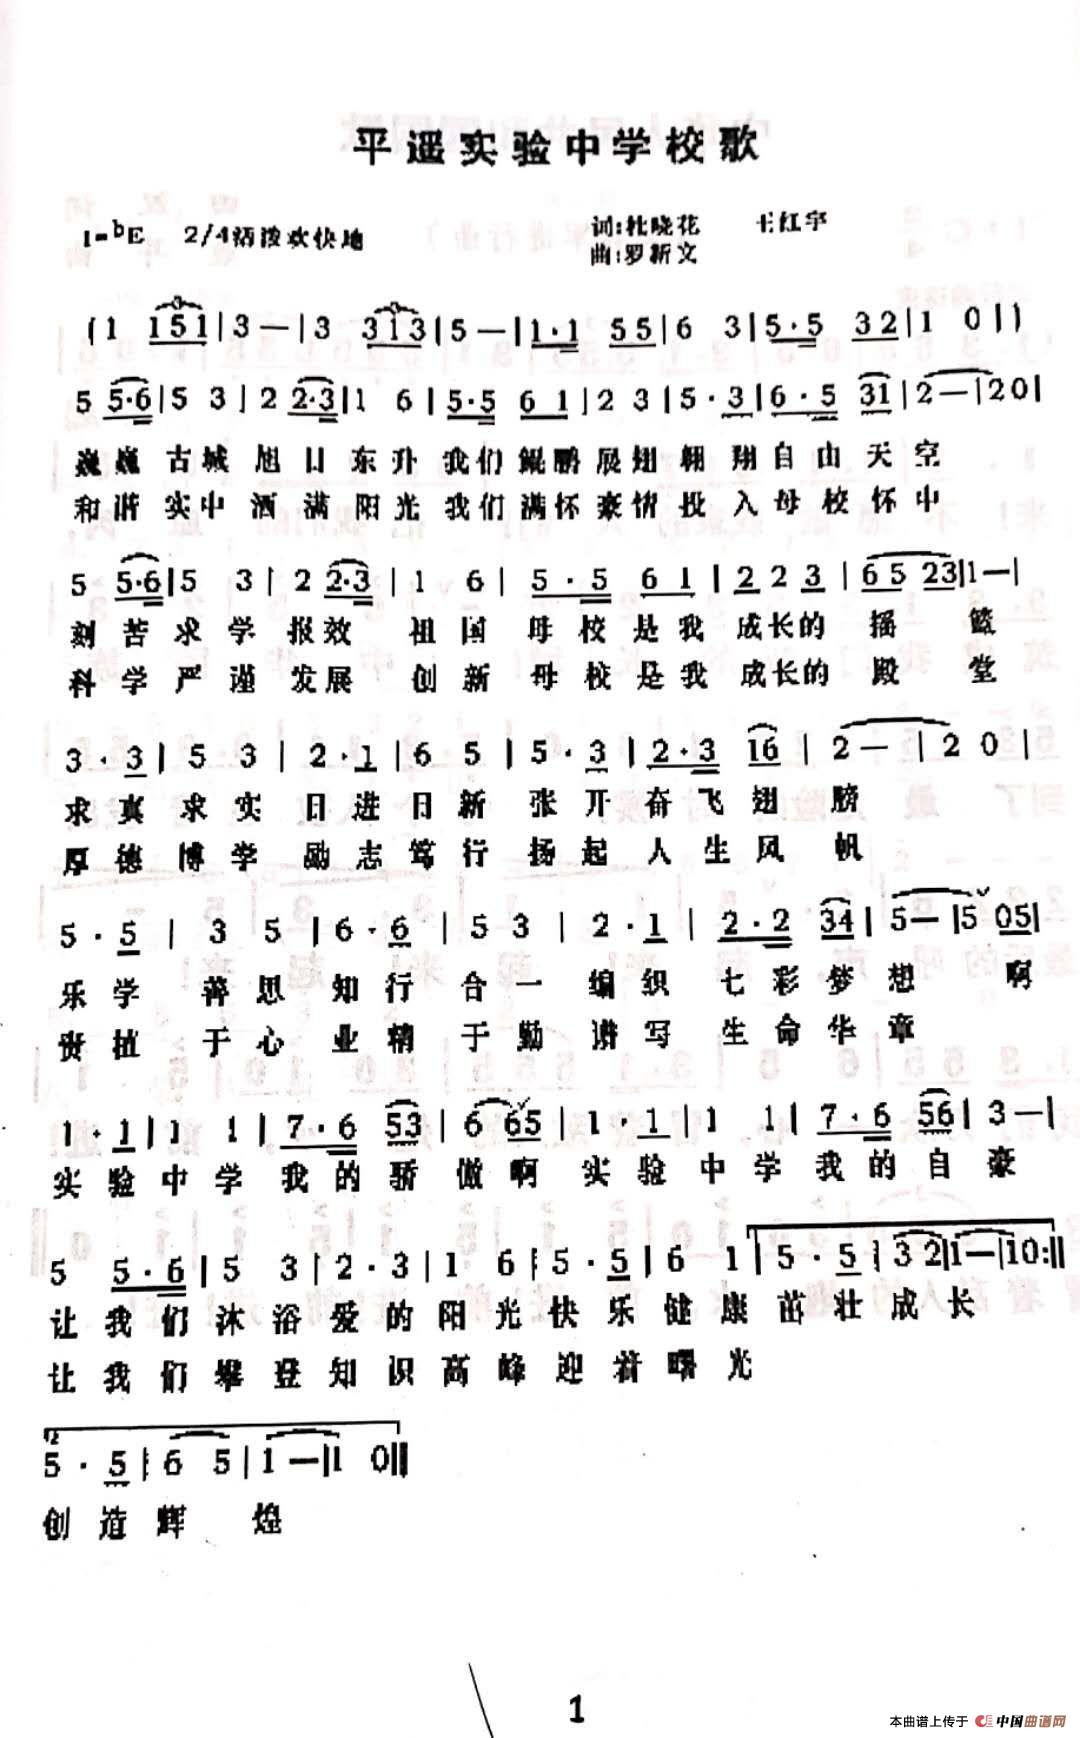 平遥实验中学校歌
1=bE 2/4 活泼欢快地
词:杜晓花 王红宇
曲:罗新文
(1 151|3—|3 313|5—|1·1 55|6 3|5·5 32|1 0||)
5 5·6|5 3|2 2·3|1 6|5·5 61|2 3|5·3|6·5 31|2—|20|
巍巍古城旭日东升我们鲲鹏展翅翱翔自由天空
和谐实中洒满阳光我们满怀豪情投入母校怀中
5 5·6|5 3|2 2·3|1 6|5·5 61|2 2 3|65 23|1—|
刻苦求学报效祖国母校是我成长的摇篮
科学严谨发展创新母校是我成长的殿堂
3·3|5 3|2·1|6 5|5·3|2·3 16|2—|2 0|
求真求实日进日新张开奋飞翅膀
厚德博学励志笃行扬起人生风帆
5·5|3 5|6·6|5 3|2·1|2·2 34|5—|5 05|
乐学善思知行合一编织七彩梦想啊
贵植于心业精于勤谱写生命华章
1·1|1 1|7·6 53|6 65|1·1|1 1|7·6 56|3—|
实验中学我的骄傲啊实验中学我的自豪
5 5·6|5 3|2·3|1 6|5·5|6 1|5·5|32|1—|10:||
让我们沐浴爱的阳光快乐健康茁壮成长
让我们攀登知识高峰迎着曙光
2
5·5|6 5|1—|1 0||
创造辉煌
1
本曲谱上传于 中国曲谱网